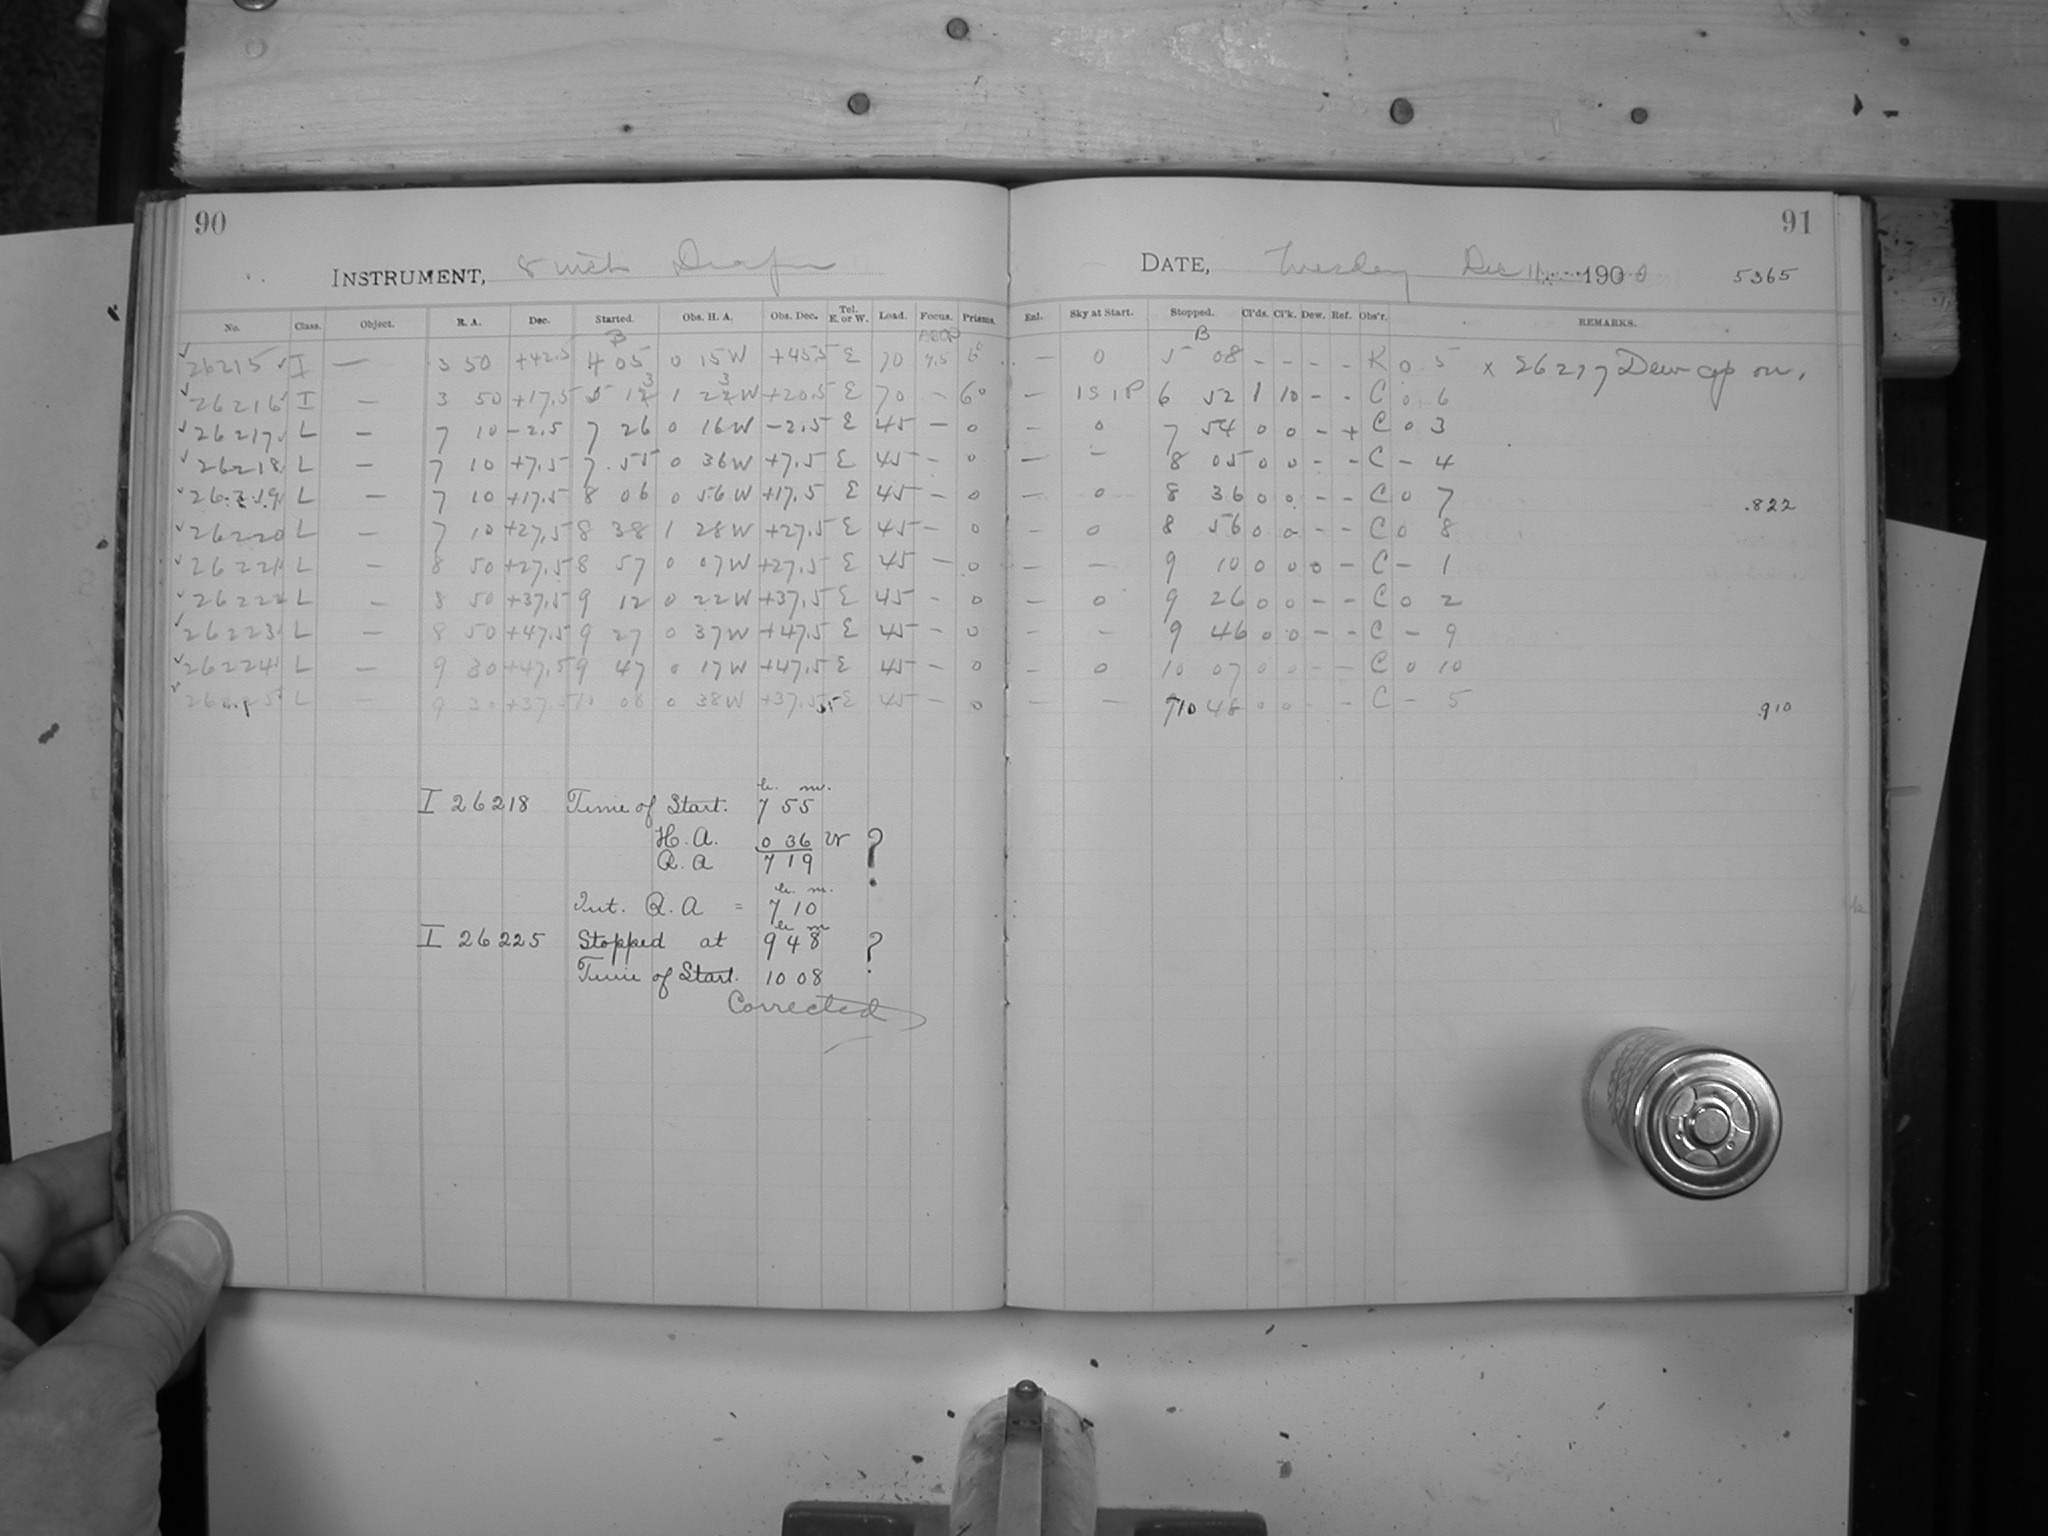 90
91
INSTRUMENT, 8 inch Draper
DATE, Tuesday Dec 11 1900 5365
No. Class. Object. R. A. Dec. Started. Obs. H. A. Obs. Dec. Tel. E. or W. Load. Focus. Prisms. Enl. Sky at Start. Stopped. Cl'ds. Cl'k. Dew. Ref. Obs'r. REMARKS.
B B
26215 I — 3 50 +42.5 4 05 0 15W +45.5 E 70 9.5 6° — 0 5 08 - - - - K 0 5 x 26217 Dew cap on.
26216 I — 3 50 +17.5 5 13 1 23W +20.5 E 70 — 6° — 1S 1P 6 52 1 10 - - C 0 6
26217 L — 7 10 -2.5 7 26 0 16W -2.5 E 45 — 0 — 0 7 54 0 0 - + C 0 3
26218 L — 7 10 +7.5 7 55 0 36W +7.5 E 45 — 0 — — 8 05 0 0 - - C - 4
26219 L — 7 10 +17.5 8 06 0 56W +17.5 E 45 — 0 — 0 8 36 0 0 - - C 0 7 .822
26220 L — 7 10 +27.5 8 38 1 28W +27.5 E 45 — 0 — 0 8 56 0 0 - - C 0 8
26221 L — 8 50 +27.5 8 57 0 07W +27.5 E 45 — 0 — — 9 10 0 0 0 - C - 1
26222 L — 8 50 +37.5 9 12 0 22W +37.5 E 45 - 0 — 0 9 26 0 0 - - C 0 2
26223 L — 8 50 +47.5 9 27 0 37W +47.5 E 45 - 0 — — 9 46 0 0 - - C - 9
26224 L — 9 30 +47.5 9 47 0 17W +47.5 E 45 — 0 — 0 10 07 0 0 - - C 0 10
26225 L — 9 30 +37.5 10 08 0 38W +37.5 E 45 — 0 — — 10 48 0 0 - - C - 5 .910
h. m.
I 26218 Time of Start. 7 55
H. A. 0 36 W ?
R. A 7 19
h. m.
Int. R. A = 7 10
h m
I 26225 Stopped at 9 48 ?
Time of Start. 10 08
Corrected